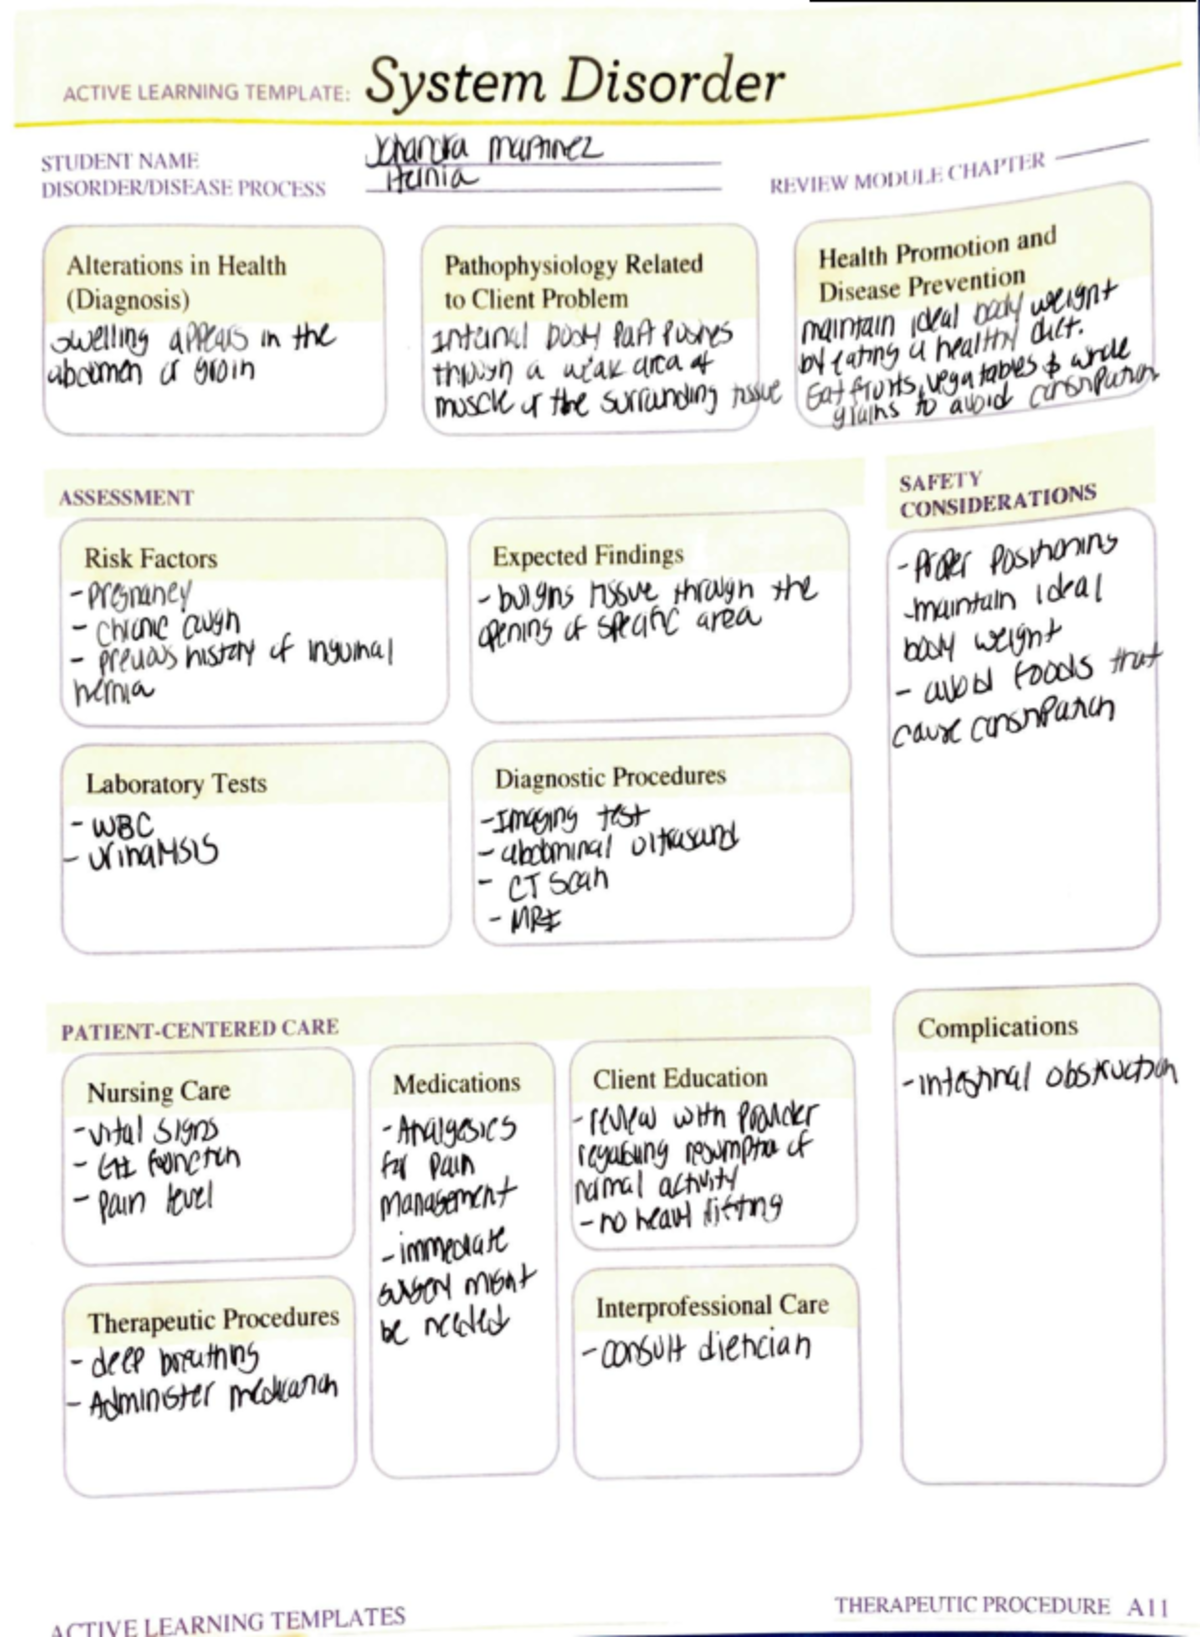 ACTIVE LEARNING TEMPLATE: System Disorder
STUDENT NAME martinez
DISORDER/DISEASE PROCESS Hernia
REVIEW MODULE CHAPTER
Alterations in Health
(Diagnosis)
swelling appears in the
abdomen or groin
Pathophysiology Related
to Client Problem
Internal body part pushes
through a weak area of
muscle or the surrounding tissue
Health Promotion and
Disease Prevention
maintain ideal body weight
by eating a healthy diet.
Eat fruits, vegatables & whole
grains to avoid constipation
ASSESSMENT
Risk Factors
- pregnancy
- chronic cough
- previous history of inguinal
hernia
Expected Findings
- bulging tissue through the
opening of specific area
SAFETY
CONSIDERATIONS
- Proper positioning
- maintain ideal
body weight
- avoid foods that
cause constipation
Laboratory Tests
- WBC
- urinalysis
Diagnostic Procedures
- Imaging test
- abdominal ultrasound
- CT scan
- MRI
PATIENT-CENTERED CARE
Nursing Care
- vital signs
- GI function
- pain level
Medications
- Analgesics
for pain
management
- immediate
surgery might
be needed
Client Education
- review with provider
regarding resumption of
normal activity
- no heavy lifting
Complications
- intestinal obstruction
Therapeutic Procedures
- deep breathing
- Administer medication
Interprofessional Care
- consult dietician
ACTIVE LEARNING TEMPLATES
THERAPEUTIC PROCEDURE A11